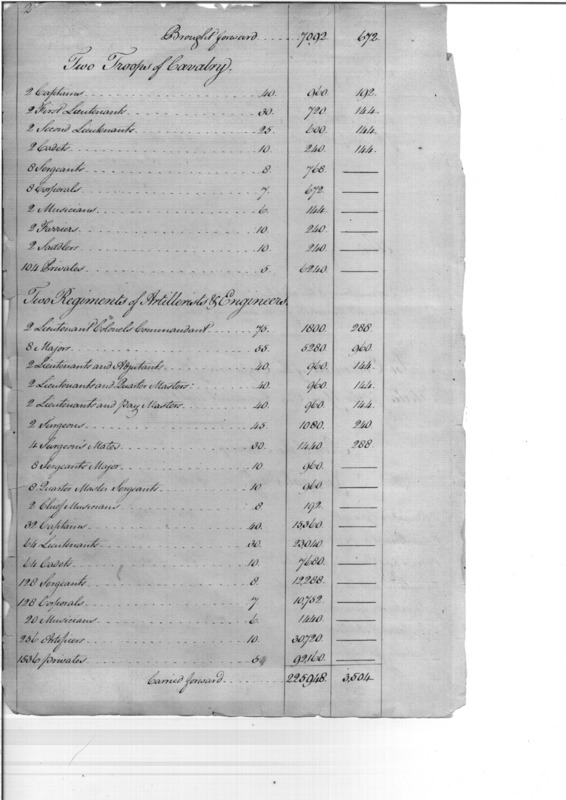 2
Brought forward 7092 672
Two Troops of Cavalry.
2 Captains 40. 960 192
2 First Lieutenants 30. 720 144
2 Second Lieutenants 25. 600 144
2 Cadets 10 240 144
8 Sergeants 8. 768
8 Corporals 7. 672
2 Musicians 6. 144
2 Farriers 10 240
2 Saddlers 10. 240
104 Privates 5. 6240
Two Regiments of Artillerists & Engineers.
2 Lieutenant Colonels Commandant 75. 1800 288
8 Majors 55. 5280 960
2 Lieutenants and Adjutants 40. 960 144
2 Lieutenants and Quarter Masters 40. 960 144
2 Lieutenants and Pay Masters 40. 960 144
2 Surgeons 45 1080 240
4 Surgeons Mates 30 1440 288
8 Sergeants Major 10 960
8 Quarter Master Sergeants 10 960
2 Chief Musicians 8 192
32 Captains 40. 15360
64 Lieutenants 30. 23040
64 Cadets 10. 7680
128 Sergeants 8. 12,288
128 Corporals 7 10,752
20 Musicians 6. 1440
256 Artificers 10. 30720
1536 privates 5 92,160
Carried forward 225948 3,504